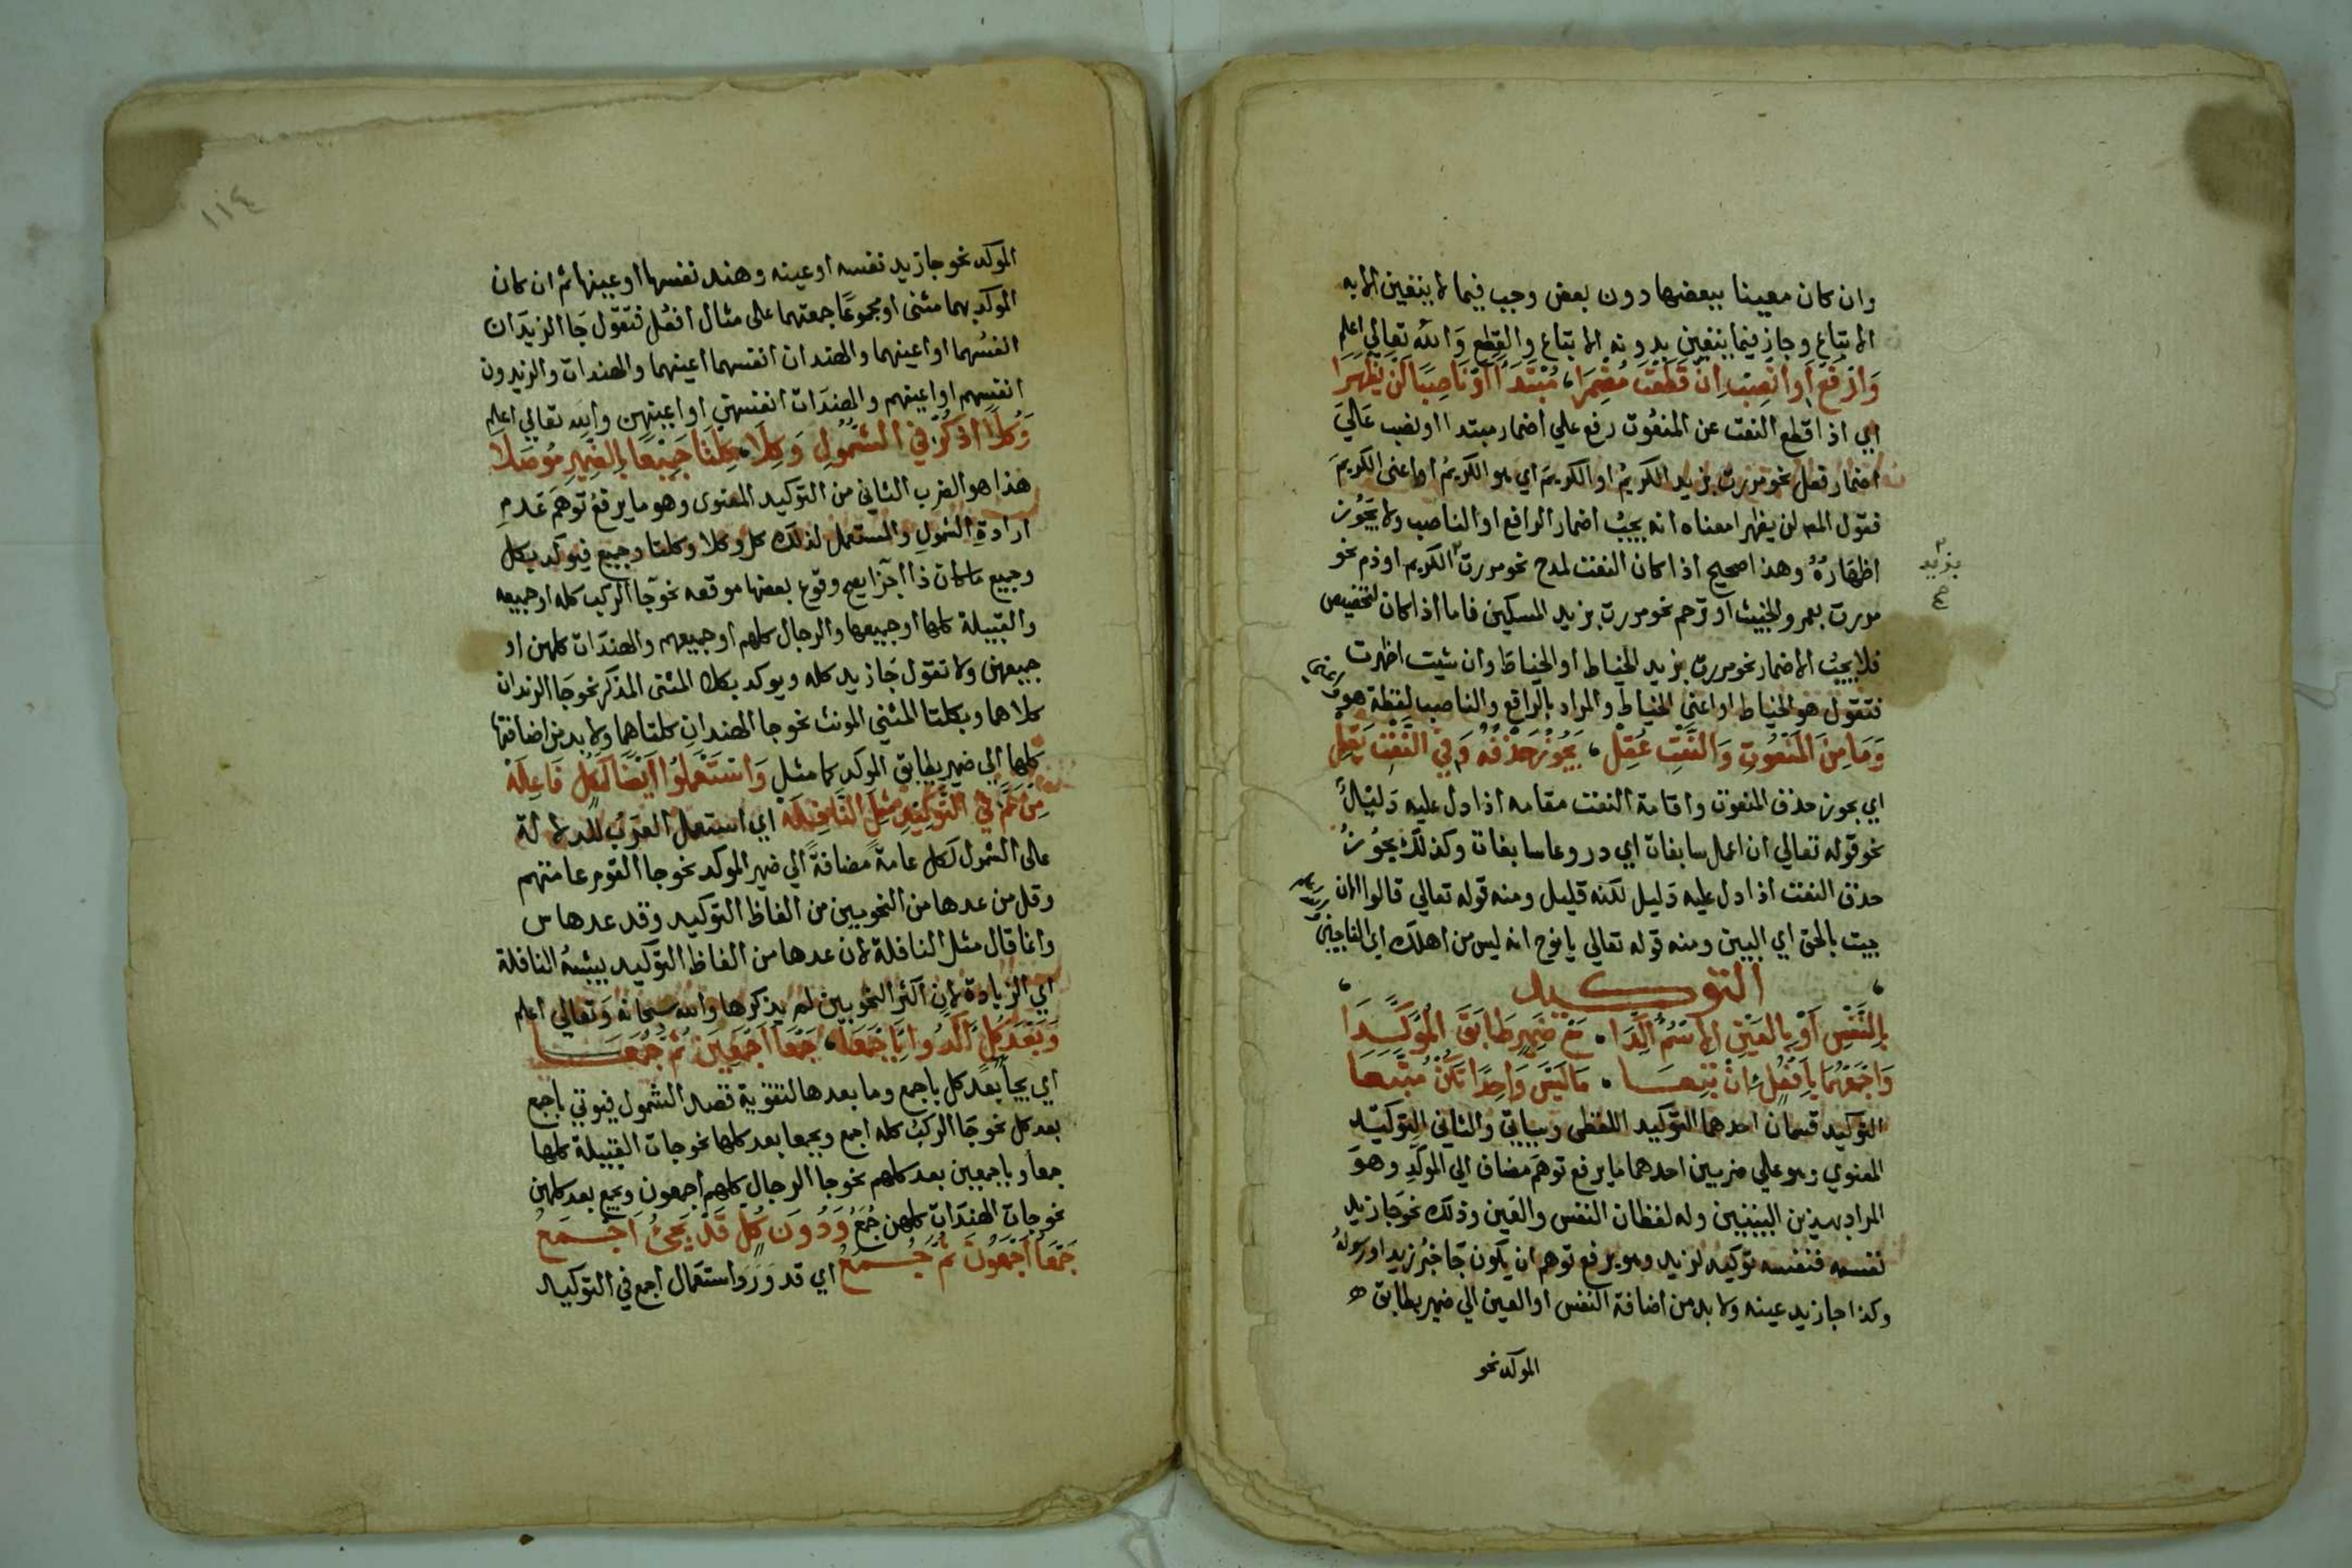 وان كان معينا ببعضها دون بعض وجب فيما لا يتعين الا به
الاتباع وجاز فيما يتعين بدونه الاتباع والقطع وَالله تعالي اعلم
وَارْفَعْ اَوِ انْصِبْ اِنْ قَطَعْتَ مُضْمِرَا، مُبْتَدَأً اَوْ نَاصِبًا لَنْ يَظْهَرَا
اي اذا قطع النعت عن المنعُوت رفع علي اضمار مبتدا او نصب عَاليَ
اضمار فعل نحو مررت بزيد الكريمُ او الكريمَ اي هو الكريمُ او اعنى الكريمَ
فقول المص لن يظهرا معناه انه يجبُ اضمار الرافع او الناصب ولا يَجُوز
اظهَارُهُ وهذا صحيح اذا كان النعت لمدح نحو مررت الكريم او ذم نحو
بزيد
صح
مررت بعمرو الخبيث او ترحم نحو مررت بزيد المسكين فاما اذا كان لتخصيص
فلا يجبُ الاضمار نحو مررت بزيد الخياط او الخياطَ وان شيت اظهرت
فتقول هو الخياط او اعنى الخياط والمراد بالرافع والناصب لفظة هو
وَمَا مِنَ المَنْعُوتِ وَالنَّعْتِ عُقِلْ، يَجُوزُ حَذْفُهُ وَفِي النَّعْتِ يَقِلْ
اي يجوز حذف المنعوت واقامة النعت مقامه اذا دل عليه دَليْلٌ
نحو قوله تعالي ان اعمل سابغات اي دروعا سابغات وكذلك يجُوزُ
حذف النعت اذا دل عليه دَليل لكنه قليل ومنه قوله تعالي قالوا الان
جيت بالحق اي البين ومنه قوله تعالي يا نوح انه ليس من اهلك اي الناجين
التوكيد
بِالنَّفْسِ اَوْ بِالعَيْنِ الاسْمُ اُكِّدَا، مَعْ ضَمِيرٍ طَابَقَ المُوَكَّدَا
وَاجْمَعْهُمَا بِاَفْعُلٍ اِنْ تَبِعَا، مَا لَيْسَ وَاحِدًا تَكُنْ مُتَّبِعَا
التوكيد قسمان احدهما التوكيد اللفظى وسياتي والثاني التوكيد
المعنوي وهو علي ضربين احدهما ما يرفع توهم مضاف الي الموكد وهو
المراد بهذين البيتين وله لفظان النفس والعين وذلك نحو جَا زيد
نفسه فنفسه توكيد لزيد وهو يرفع توهم ان يكون جَا خبرُ زيد او رسولهُ
وكذا جا زيد عينه ولا بد من اضافة النفس او العين الي ضمير يطابق
الموكد نحو
١١٤
الموكد نحو جا زيد نفسه او عينه وهند نفسها او عينها ثم ان كان
الموكد بهما مثنى او مجموعًا جمعتهما على مثال افعُل فتقول جَا الزيدَان
انفسُهما او اعينهما والهندان انفسهما اعينهما والهندات والزيدون
انفسهم او اعينهم والهندَات انفسهن او اعينهن والله تعالي اعلم
وَكُلًّا اذْكُرْ فِي الشُّمُولِ وَكِلَا، كِلْتَا جَمِيْعًا بِالضَّمِيْرِ مُوصَلَا
هذا هو الضرب الثاني من التوكيد المعنوى وهو ما يرفعُ توهمَ عَدمِ
ارادةِ الشمولِ والمستعمل لذلك كل وكلا وكلتا وجميع فيوكد بكل
وجميع ما كان ذا اجزا يصح وقوع بعضها موقعه نحو جَا الركب كله او جميعه
والقبيلة كلها او جميعها والرجال كلهم او جميعهم والهندَات كلهن او
جميعهن ولا تقول جَا زيد كله ويوكد بكلا المثنى المذكر نحو جَا الزيدان
كلاهما وبكلتا المثنى المونث نحو جا الهندانِ كلتاهما ولا بد من اضافتها
كلها الي ضمير يطابق الموكد كما مثل وَاسْتَعْمَلُوا اَيْضًا كَكُلٍّ فَاعِلَهْ
مِنْ عَمَّ فِي التَّوْكِيْدِ مِثْلَ النَّافِلَهْ اي استعمل العَرَبُ للدلالة
على الشمول ككل عامةً مضافةً الي ضمير الموكد نحو جا القوم عامتهم
وقل من عدها من النحويين من الفاظ التوكيد وقد عدها س
وانما قال مثل النافلة لان عدها من الفاظ التوكيد يشبهُ النافلة
اي الزيادة لان اكثر النحويين لم يذكرها والله سبحانه وَتعالي اعلم
وَبَعْدَ كُلٍّ اَكَّدُوا بِاَجْمَعَا، جَمْعَا اَجْمَعِيْنَ ثُمَّ جُمَعَا
اي يجأ بعد كل باجمع وما بعدها لتقوية قصد الشمول فيوتي باجمع
بعد كل نحو جَا الركبُ كله اجمع وبجمعا بعد كلها نحو جات القبيلة كلها
جمعا وباجمعين بعد كلهم نحو جا الرجال كلهم اجمعون وبجمع بعد كلهن
نحو جات الهندَات كلهن جُمَعُ وَدُونَ كُلٍّ قَدْ يَجِئُ اَجْمَعُ
جَمْعَا اَجْمَعُونَ ثُمَّ جُمَعُ اي قد وَرَدَ استعمال اجمع في التوكيد